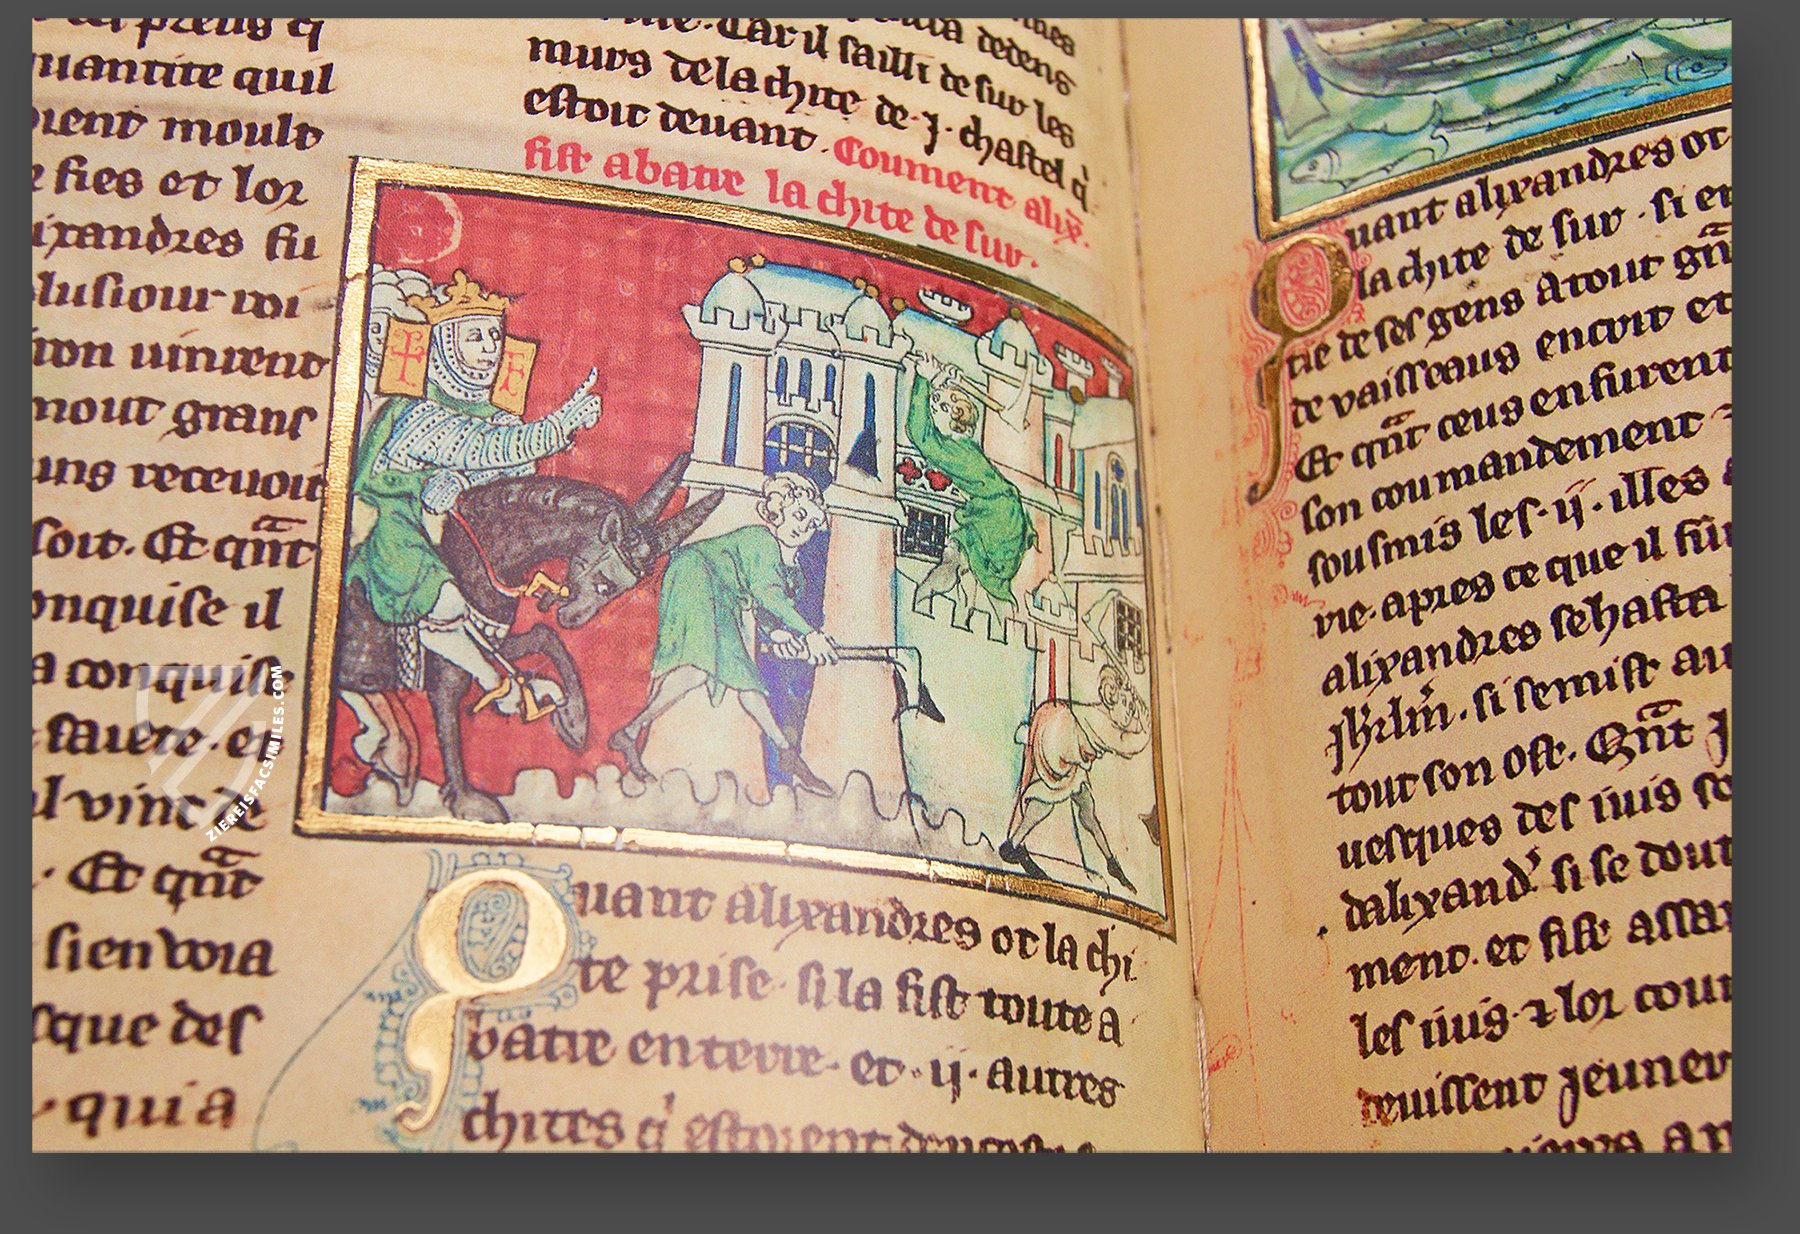 quantite quil
oient moult
e fies et lor
ixandres fu
plusiour roi
iron uinrent
mout grans
uns receuoit
soit. Et qñt
onquise il
a conquise
faiete. et
al vint de
. Et qñt
si en vora
sque def
qui a
Car il sailli de sur les
murs de la chite de .j. chastel q̇
estoit deuant. Coument alix̄.
fist abatre la chite de sur.
Quant alixandres ot la chi
te prise. si la fist toute a
batre en terre. et .ij. autres
chites q̇ estoient
Quant alixandres ot
la chite de sur. si en
tie de ses gens a tout gñ
de vaisseaus encoit et
Et qñt ceus en furent
son coumandement
sousmis les .ij. illes
vie. apres ce que il fu
alixandres se hasta
jhrlm̄. si se mist au
tout son ost. Qñt j
uesques des iuis so
dalixand' si se dout
ment. et fist assa
les iuis ⁊ lor cou
teuissent jeuner
ZIEREISFACSIMILES.COM